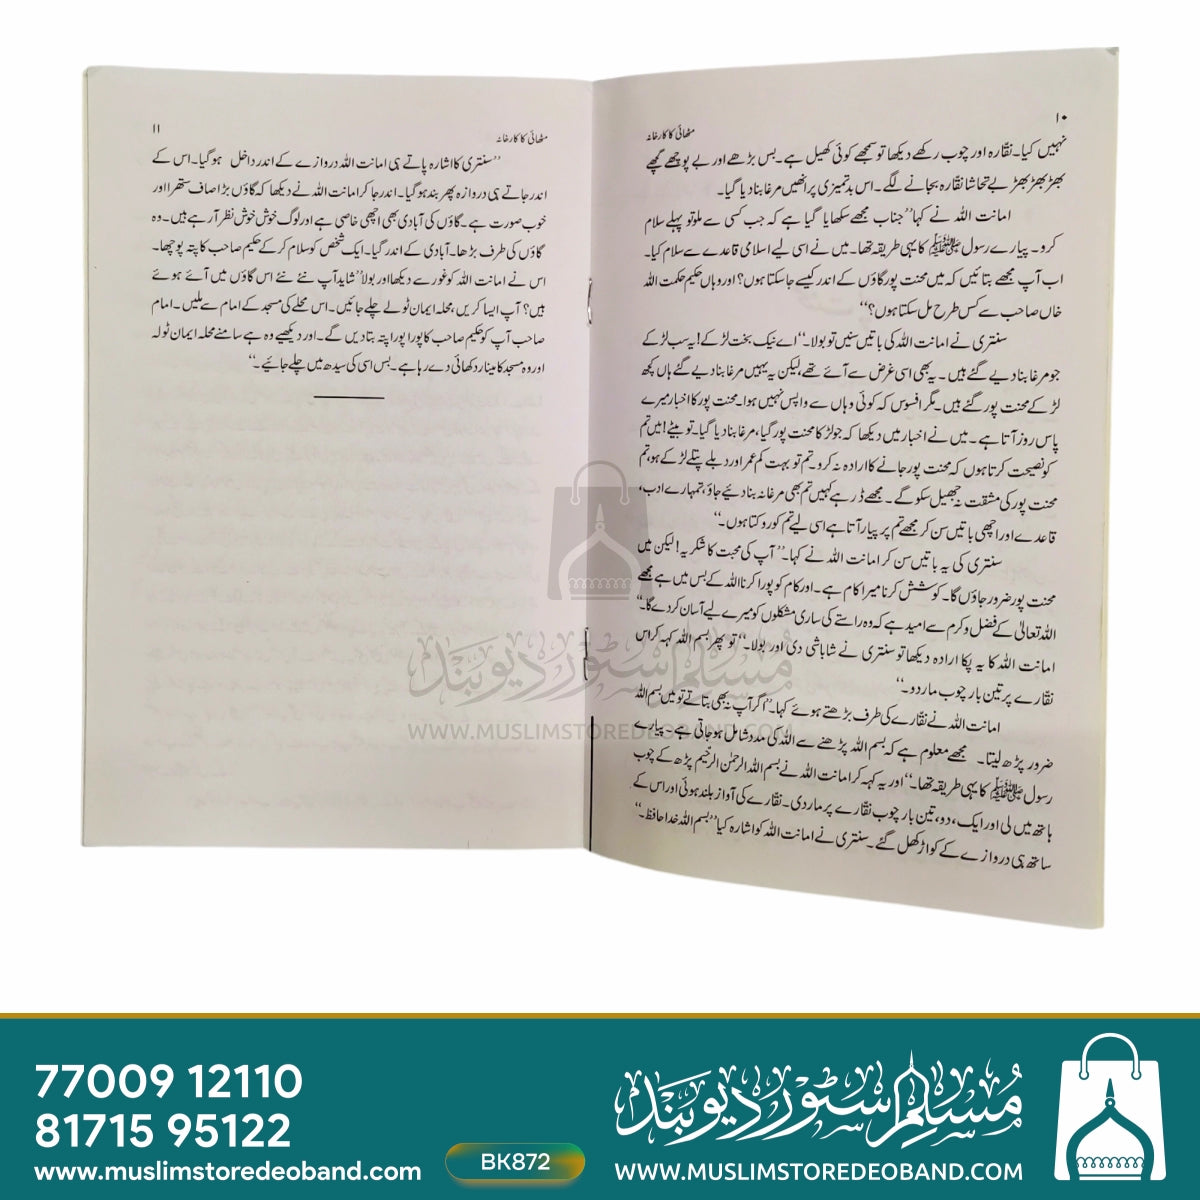 ۱۰
مٹھائی کا کارخانہ
نہیں کیا۔ نقارہ اور چوب رکھے دیکھا تو سمجھے کوئی کھیل ہے۔ بس بڑھے اور بے پوچھے گچھے
بھڑبھڑبھڑ بے تحاشا نقارہ بجانے لگے۔ اس بدتمیزی پر انھیں مرغا بنا دیا گیا۔
امانت اللہ نے کہا ”جناب مجھے سکھایا گیا ہے کہ جب کسی سے ملو تو پہلے سلام
کرو۔ پیارے رسول ﷺ کا یہی طریقہ تھا۔ میں نے اسی لیے اسلامی قاعدے سے سلام کیا۔
اب آپ مجھے بتائیں کہ میں محنت پور گاؤں کے اندر کیسے جا سکتا ہوں؟ اور وہاں حکیم حکمت اللہ
خاں صاحب سے کس طرح مل سکتا ہوں؟“
سنتری نے امانت اللہ کی باتیں سنیں تو بولا۔ ”اے نیک بخت لڑکے! یہ سب لڑکے
جو مرغا بنا دیے گئے ہیں۔ یہ بھی اسی غرض سے آئے تھے، لیکن یہ یہیں مرغا بنا دیے گئے ہاں کچھ
لڑکے محنت پور گئے ہیں۔ مگر افسوس کہ کوئی وہاں سے واپس نہیں ہوا۔ محنت پور کا اخبار میرے
پاس روز آتا ہے۔ میں نے اخبار میں دیکھا کہ جو لڑکا محنت پور گیا، مرغا بنا دیا گیا۔ تو بیٹے! میں تم
کو نصیحت کرتا ہوں کہ محنت پور جانے کا ارادہ نہ کرو۔ تم تو بہت کم عمر اور دبلے پتلے لڑکے ہو، تم
محنت پور کی مشقت نہ جھیل سکو گے۔ مجھے ڈر ہے کہیں تم بھی مرغا نہ بنا دیئے جاؤ، تمہارے ادب،
قاعدے اور اچھی باتیں سن کر مجھے تم پر پیار آتا ہے اسی لیے تم کو روکتا ہوں۔“
سنتری کی یہ باتیں سن کر امانت اللہ نے کہا۔ ”آپ کی محبت کا شکریہ! لیکن میں
محنت پور ضرور جاؤں گا۔ کوشش کرنا میرا کام ہے۔ اور کام کو پورا کرنا اللہ کے بس میں ہے مجھے
اللہ تعالیٰ کے فضل و کرم سے امید ہے کہ وہ راستے کی ساری مشکلوں کو میرے لیے آسان کر دے گا۔“
امانت اللہ کا یہ پکا ارادہ دیکھا تو سنتری نے شاباشی دی اور بولا۔ ”تو پھر بسم اللہ کہہ کر اس
نقارے پر تین بار چوب مار دو۔“
امانت اللہ نے نقارے کی طرف بڑھتے ہوئے کہا۔ ”اگر آپ نہ بھی بتاتے تو میں بسم اللہ
ضرور پڑھ لیتا۔ مجھے معلوم ہے کہ بسم اللہ پڑھنے سے اللہ کی مدد شامل ہو جاتی ہے۔ پیارے
رسول ﷺ کا یہی طریقہ تھا۔“ اور یہ کہہ کر امانت اللہ نے بسم اللہ الرحمٰن الرحیم پڑھ کے چوب
ہاتھ میں لی اور ایک، دو، تین بار چوب نقارے پر مار دی۔ نقارے کی آواز بلند ہوئی اور اس کے
ساتھ ہی دروازے کے کواڑ کھل گئے۔ سنتری نے امانت اللہ کو اشارہ کیا ”بسم اللہ خدا حافظ۔“
مٹھائی کا کارخانہ
۱۱
”سنتری کا اشارہ پاتے ہی امانت اللہ دروازے کے اندر داخل ہو گیا۔ اس کے
اندر جاتے ہی دروازہ پھر بند ہو گیا۔ اندر جا کر امانت اللہ نے دیکھا کہ گاؤں بڑا صاف ستھرا اور
خوب صورت ہے۔ گاؤں کی آبادی بھی اچھی خاصی ہے اور لوگ خوش خوش نظر آ رہے ہیں۔ وہ
گاؤں کی طرف بڑھا۔ آبادی کے اندر گیا۔ ایک شخص کو سلام کر کے حکیم صاحب کا پتہ پوچھا۔
اس نے امانت اللہ کو غور سے دیکھا اور بولا ”شاید آپ نئے نئے اس گاؤں میں آئے ہوئے
ہیں؟ آپ ایسا کریں، محلہ ایمان ٹولے چلے جائیں۔ اس محلے کی مسجد کے امام سے ملیں۔ امام
صاحب آپ کو حکیم صاحب کا پورا پورا پتہ بتا دیں گے۔ اور دیکھیے وہ ہے سامنے محلہ ایمان ٹولہ
اور وہ مسجد کا مینار دکھائی دے رہا ہے۔ بس اسی کی سیدھ میں چلے جائیے۔“
مسلم سٹور دیوبند
WWW.MUSLIMSTOREDEOBAND.COM
77009 12110
81715 95122
www.muslimstoredeoband.com
BK872
مسلم سٹور دیوبند
WWW.MUSLIMSTOREDEOBAND.COM